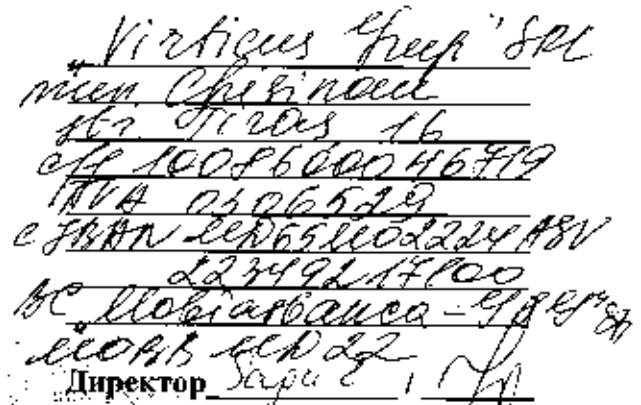 "Virticus Grup" SRL
mun Chisinau
str. Tiras 16
c/f 1008600046719
TVA 0506529
c IBAN MD65MO2224ASV
22349217100
BC Mobiasbanca -
MOBB MD22
Директор